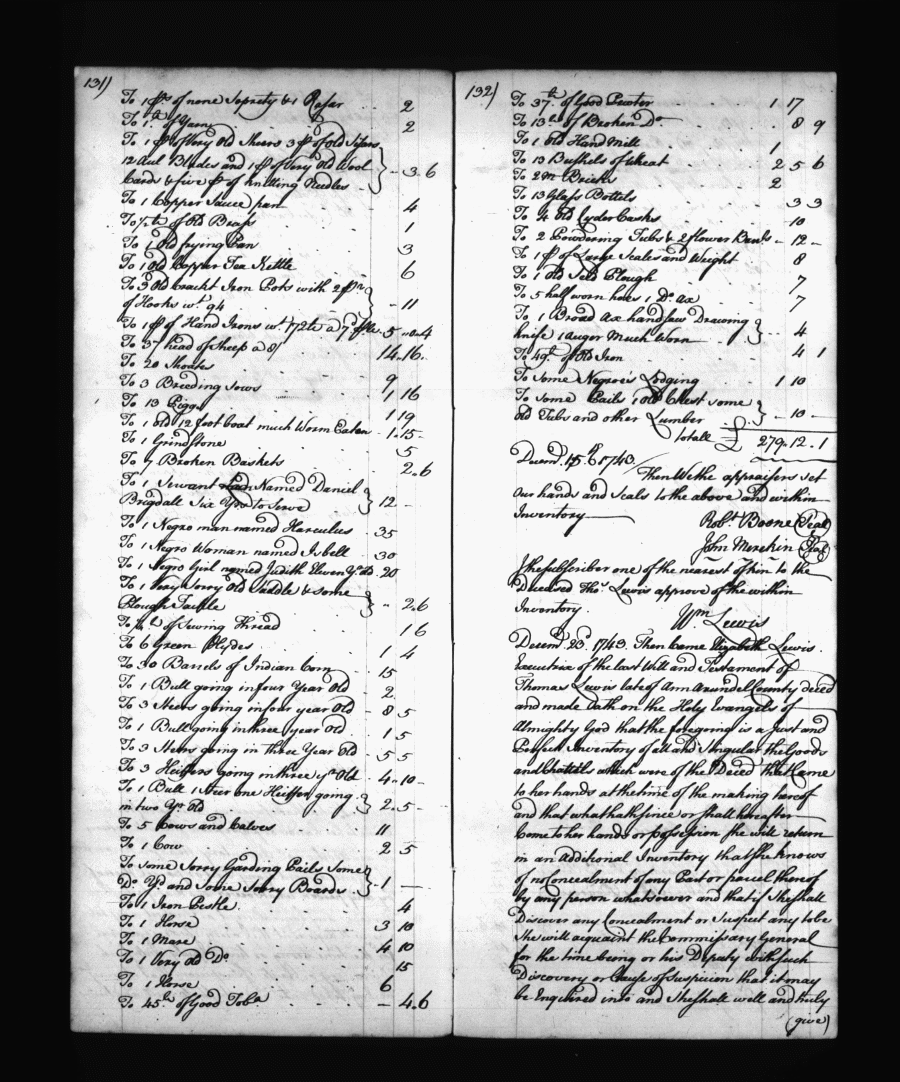 131)
To 1 pr of none Soprety & 1 Rasar .. 2
To 1 lb of Yarn .. 2
To 1 pr of Very Old Sheers 3 pr of Old Sisers
12 Aul Blades and 1 pr of Very Old Wool
Cards & five pr of knitting Needles .. } - 3. 6
To 1 Copper Sauce pan .. 4
To 7 lb of Old Brass .. 1
To 1 Old frying Pan .. 3
To 1 Old Copper Tea Kettle .. 6
To 3 Old Crackt Iron Pots with 2 pr
of Hooks wt 94 } - 11
To 1 pr of Hand Irons wt 172 lb a 7d .. 5 .. 4
To 37 head of Sheep a 8/ 14. 16.
To 20 Shoats 9
To 3 Breeding Sows 1 16
To 13 Piggs 1 19
To 1 old 12 foot boat much Worm Eaten - 1. 15 -
To 1 Grindstone 5
To 7 Broken Baskets 2. 6
To 1 Servant Named Daniel
Brigdall Six Yrs to Serve } 12 -
To 1 Negro man named Harculus 35
To 1 Negro Woman named Isbell 30
To 1 Negro Girl named Judith Eleven Yr Old 20
To 1 Very Sorry Old Saddle & some
Plough Tackle } " 2. 6
To lb of Sewing Thread 1 6
To 6 Green Hydes 1 4
To 30 Barrels of Indian Corn 15
To 1 Bull going in four Year Old 2
To 3 Steers going in four year Old - 8 5
To 1 Bull going in three year Old 1 5
To 3 Steers going in Three Year Old 5 5
To 3 Heiffers going in three yr Old 4 .. 10 -
To 1 Bull 1 Steer one Heiffer going
in two Yr Old } 2 .. 5 -
To 5 Cows and Calves 11
To 1 Cow 2 5
To some Sorry Garding Pails Some
Do Yd and Some Sorry Boards } - 1 -
To 1 Iron Pestle 4
To 1 Horse 3 10
To 1 Mare 4 10
To 1 Very Old Do 15
To 1 Horse 6
To 45 lb of Good Toba - 4. 6
132)
To 37 lb of Good Pewter 1 17
To 13 lb of Broken Do 8 9
To 1 Old Hand Mill 1
To 13 Bushels of Wheat 2 5 6
To 2 M Bricks 2
To 13 Glass Bottels 3 3
To 4 Old Cyder Casks 10
To 2 Powdering Tubs & 2 flower Barrls - 12 -
To 1 pr of Large Scales and Weight 8
To 1 Old Sull Plough 7
To 5 half worn hoes 1 Do Ax 7
To 1 Broad Ax hand saw Drawing
knife 1 Auger Much Worn } - 4
To 49 lb of Old Iron 4 1
To Some Negroe's Lodging 1 10
To some Pails 1 old Chest some
old Tubs and other Lumber } - 10 -
totall £ 279. 12. 1
Decemr. 15th 1743 Then We the appraisers set
our hands and Seals to the above and within
Inventory Robt Boone (Seal)
John Merekin (Seal)
I the subscriber one of the nearest of kin to the
Deceased Thos Lewis approve of the within
Inventory. Wm Lewis
Decemr. 23d. 1743. Then Came Elizabeth Lewis
Executrix of the last Will and Testament of
Thomas Lewis late of Ann Arundel County deced
and made Oath on the Holy Evangels of
Almighty God that the foregoing is a just and
Perfect Inventory of all and Singular the Goods
and Chattels which were of the Deced that Came
to her hands at the time of the making hereof
and that what hath since or shall hereafter
Come to her hands or possession she will return
in an Additional Inventory that she knows
of no Concealment of any Part or parcel thereof
by any person whatsoever and that if She shall
Discover any Concealment or Suspect any to be
She will acquaint the Commissary General
for the time being or his Deputy with such
Discovery or Cause of Suspicion that it may
be Inquired into and She shall well and truly
(give)